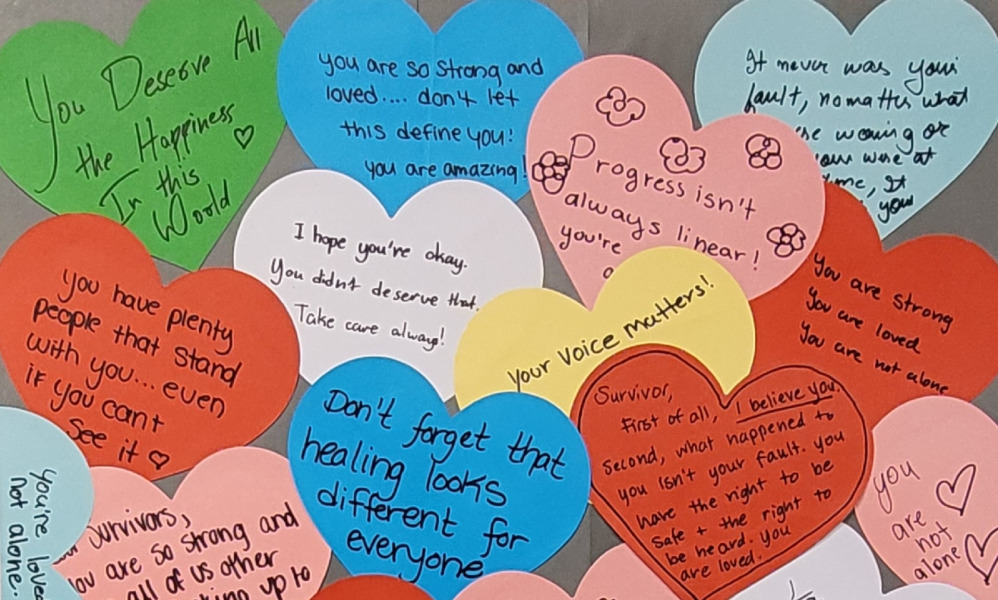 You Deserve All
the Happiness
In this
World
you are so Strong and
loved.... don't let
this define you!
you are amazing!
It never was your
fault, no matter what
wearing or
were at
It
your
Progress isn't
always linear!
you're
I hope you're okay.
You didn't deserve that.
Take care always!
you have plenty
people that stand
with you... even
if you can't
See it
your voice matters!
You are strong
You are loved
You are not alone
Don't forget that
healing looks
different for
everyone
Survivor,
First of all, I believe you.
Second, what happened to
you isn't your fault. you
have the right to be
safe + the right to
be heard. you
are loved.
you
are
not
alone
You're loved
not alone..
Survivors,
you are so strong and
all of us other
up to